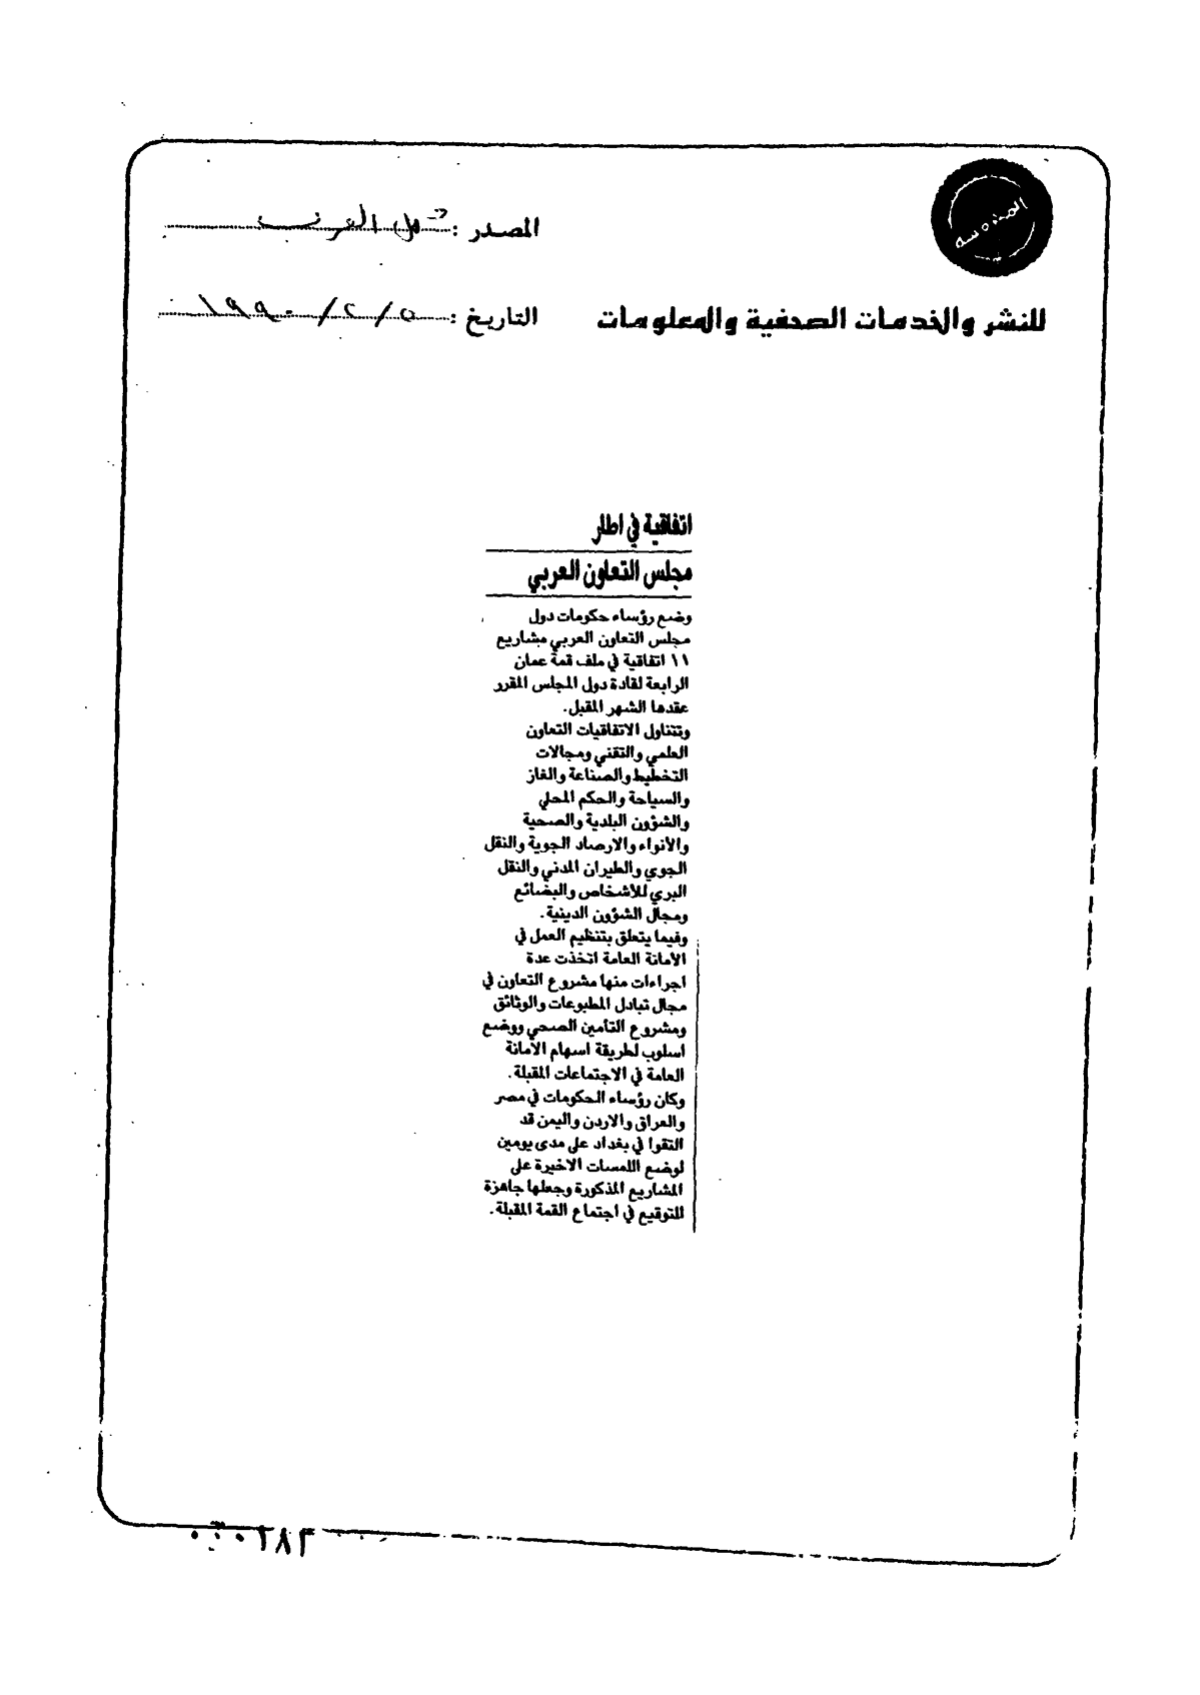 المصدر : كل العرب
للنشر والخدمات الصحفية والمعلومات
التاريخ : ٥ / ٢ / ١٩٩٠
اتفاقية في اطار
مجلس التعاون العربي
وضع رؤساء حكومات دول
مجلس التعاون العربي مشاريع
١١ اتفاقية في ملف قمة عمان
الرابعة لقادة دول المجلس المقرر
عقدها الشهر المقبل.
وتتناول الاتفاقيات التعاون
العلمي والتقني ومجالات
التخطيط والصناعة والغاز
والسياحة والحكم المحلي
والشؤون البلدية والصحية
والأنواء والارصاد الجوية والنقل
الجوي والطيران المدني والنقل
البري للأشخاص والبضائع
ومجال الشؤون الدينية.
وفيما يتعلق بتنظيم العمل في
الأمانة العامة اتخذت عدة
اجراءات منها مشروع التعاون في
مجال تبادل المطبوعات والوثائق
ومشروع التأمين الصحي ووضع
اسلوب لطريقة اسهام الأمانة
العامة في الاجتماعات المقبلة.
وكان رؤساء الحكومات في مصر
والعراق والاردن واليمن قد
التقوا في بغداد على مدى يومين
لوضع اللمسات الاخيرة على
المشاريع المذكورة وجعلها جاهزة
للتوقيع في اجتماع القمة المقبلة.